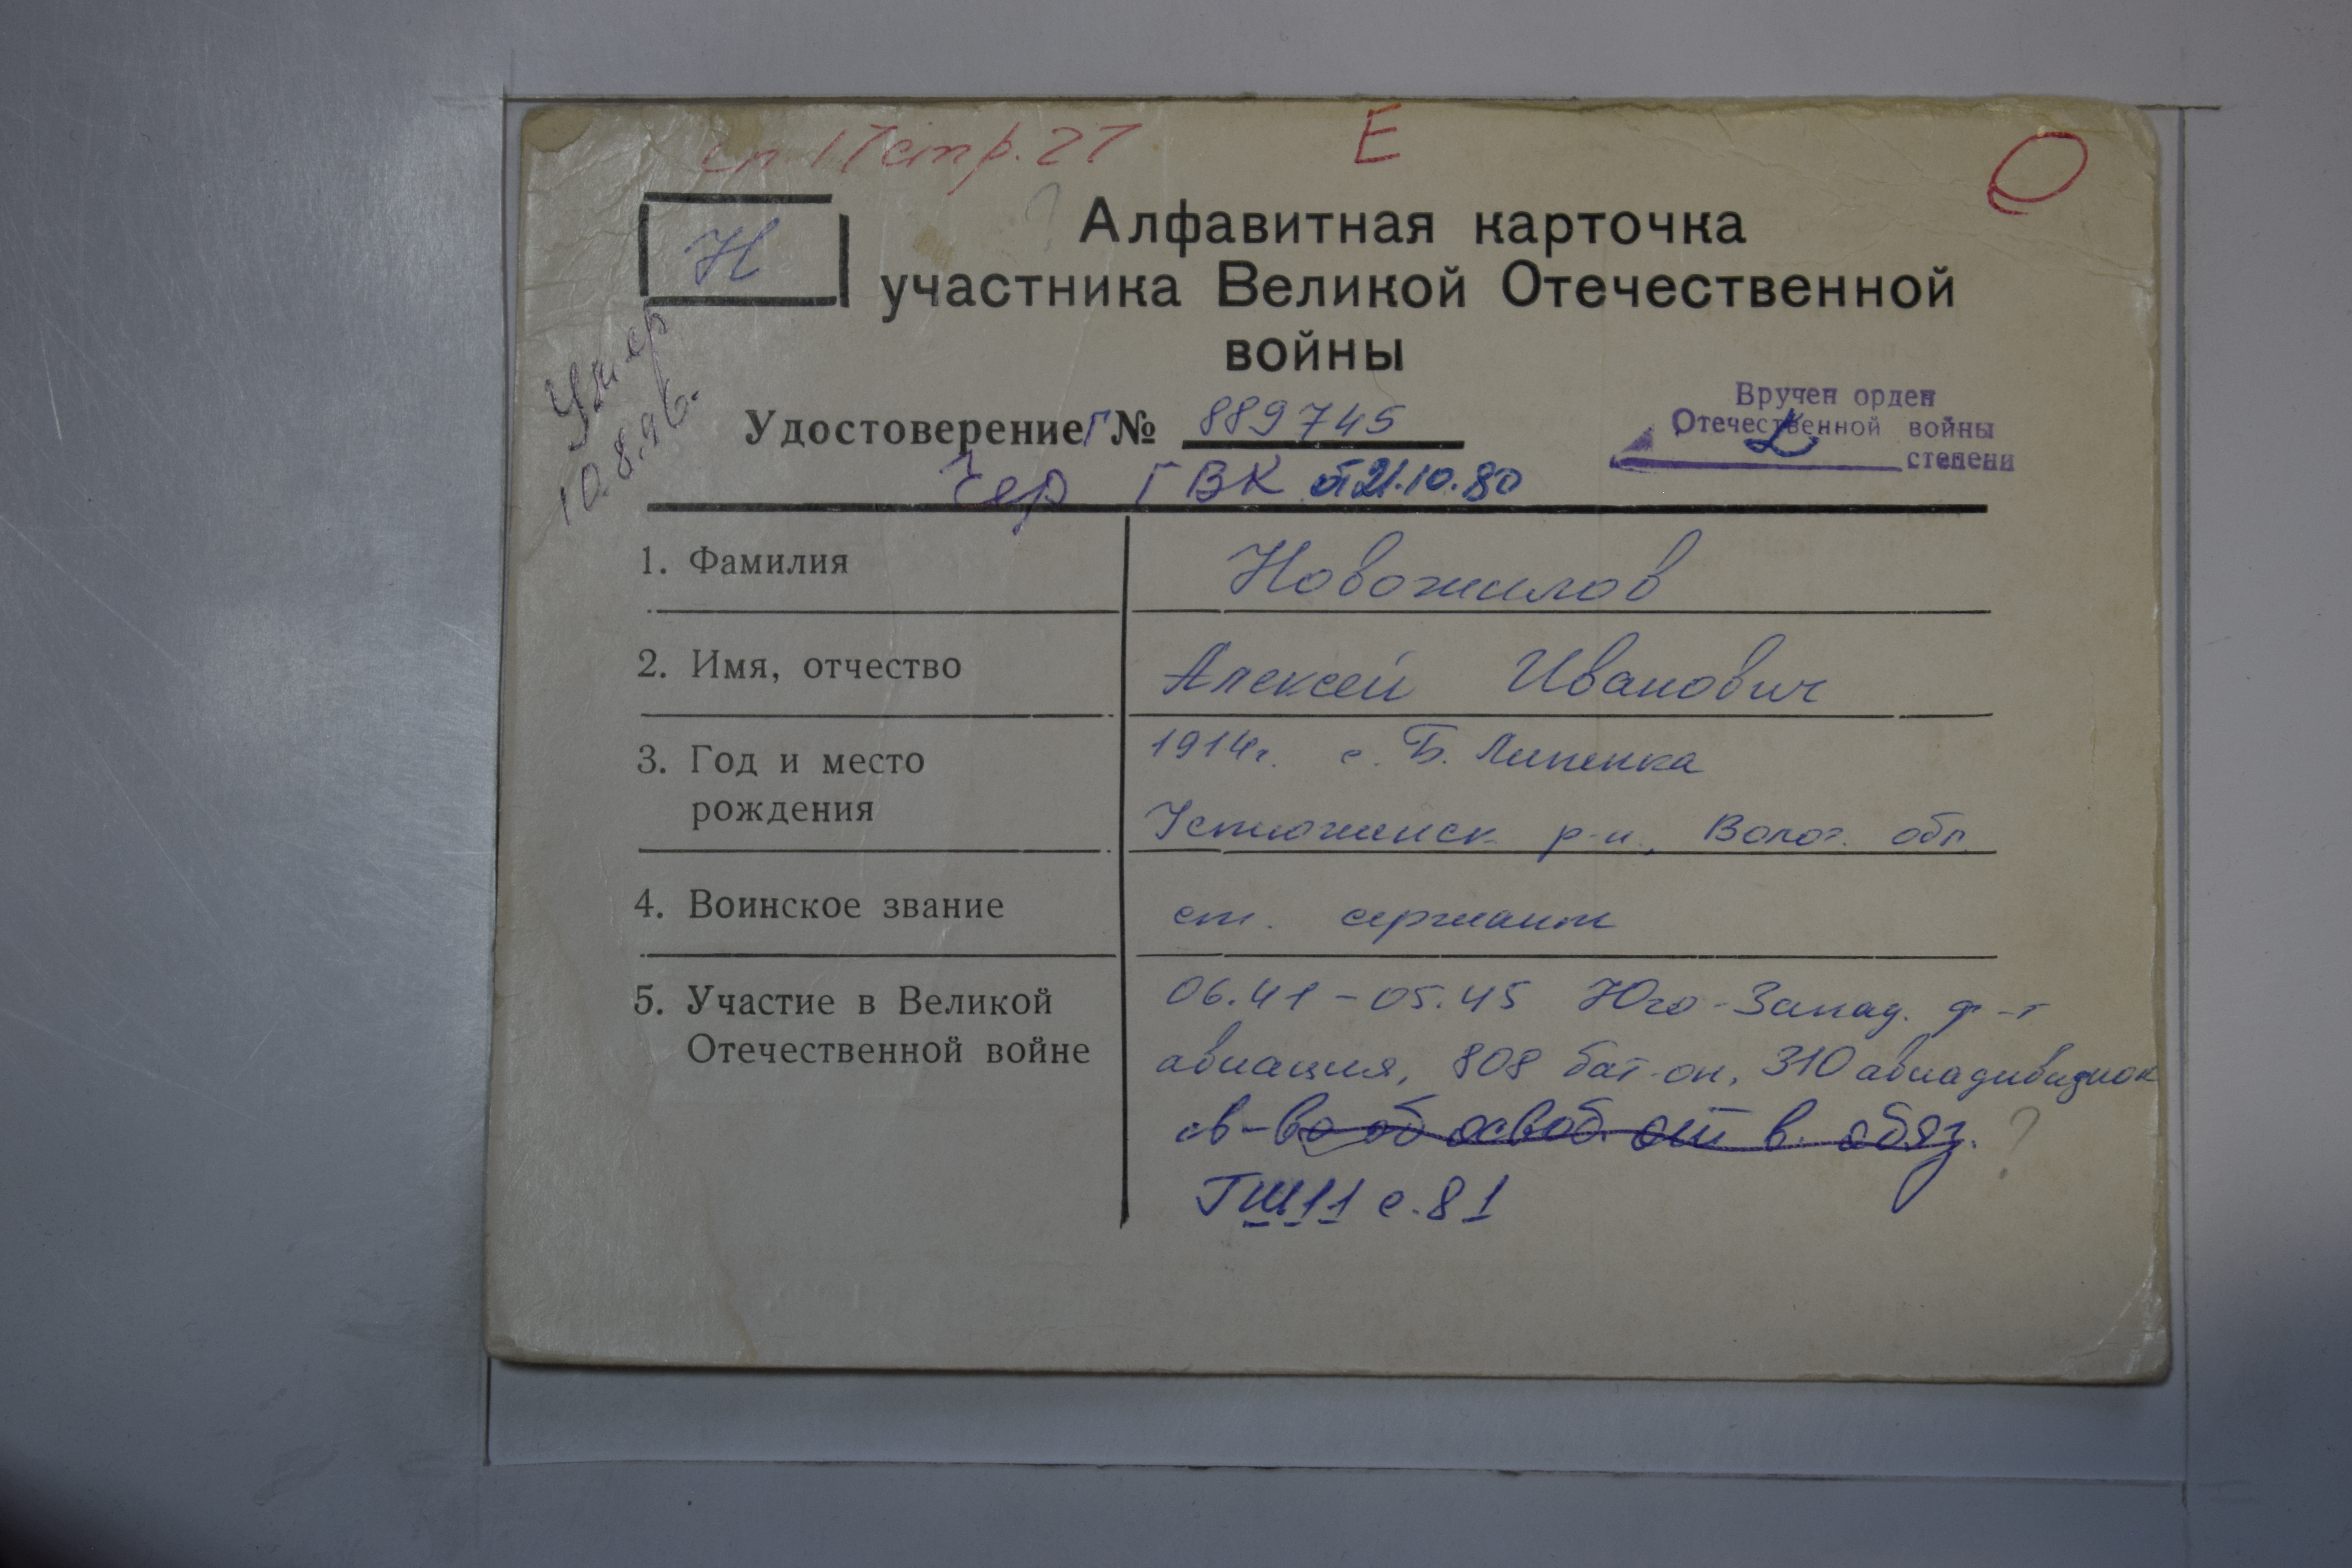 стр. 27 Е
Н
Алфавитная карточка
участника Великой Отечественной
войны
Умер
10.8.96.
Удостоверение Г № 889745
Чер ГВК от 21.10.80
Вручен орден
Отечественной войны
степени
1. Фамилия Новожилов
2. Имя, отчество Алексей Иванович
3. Год и место 1914г. с. Б. Липенка
рождения Устюженск р-н., Волог. обл.
4. Воинское звание ст. сержант
5. Участие в Великой 06.41-05.45 Юго-Запад. ф-т
Отечественной войне авиация, 808 бат-он, 310 авиадивизион
св-во об освоб. от в. обяз. ?
ГШ.11 с.81